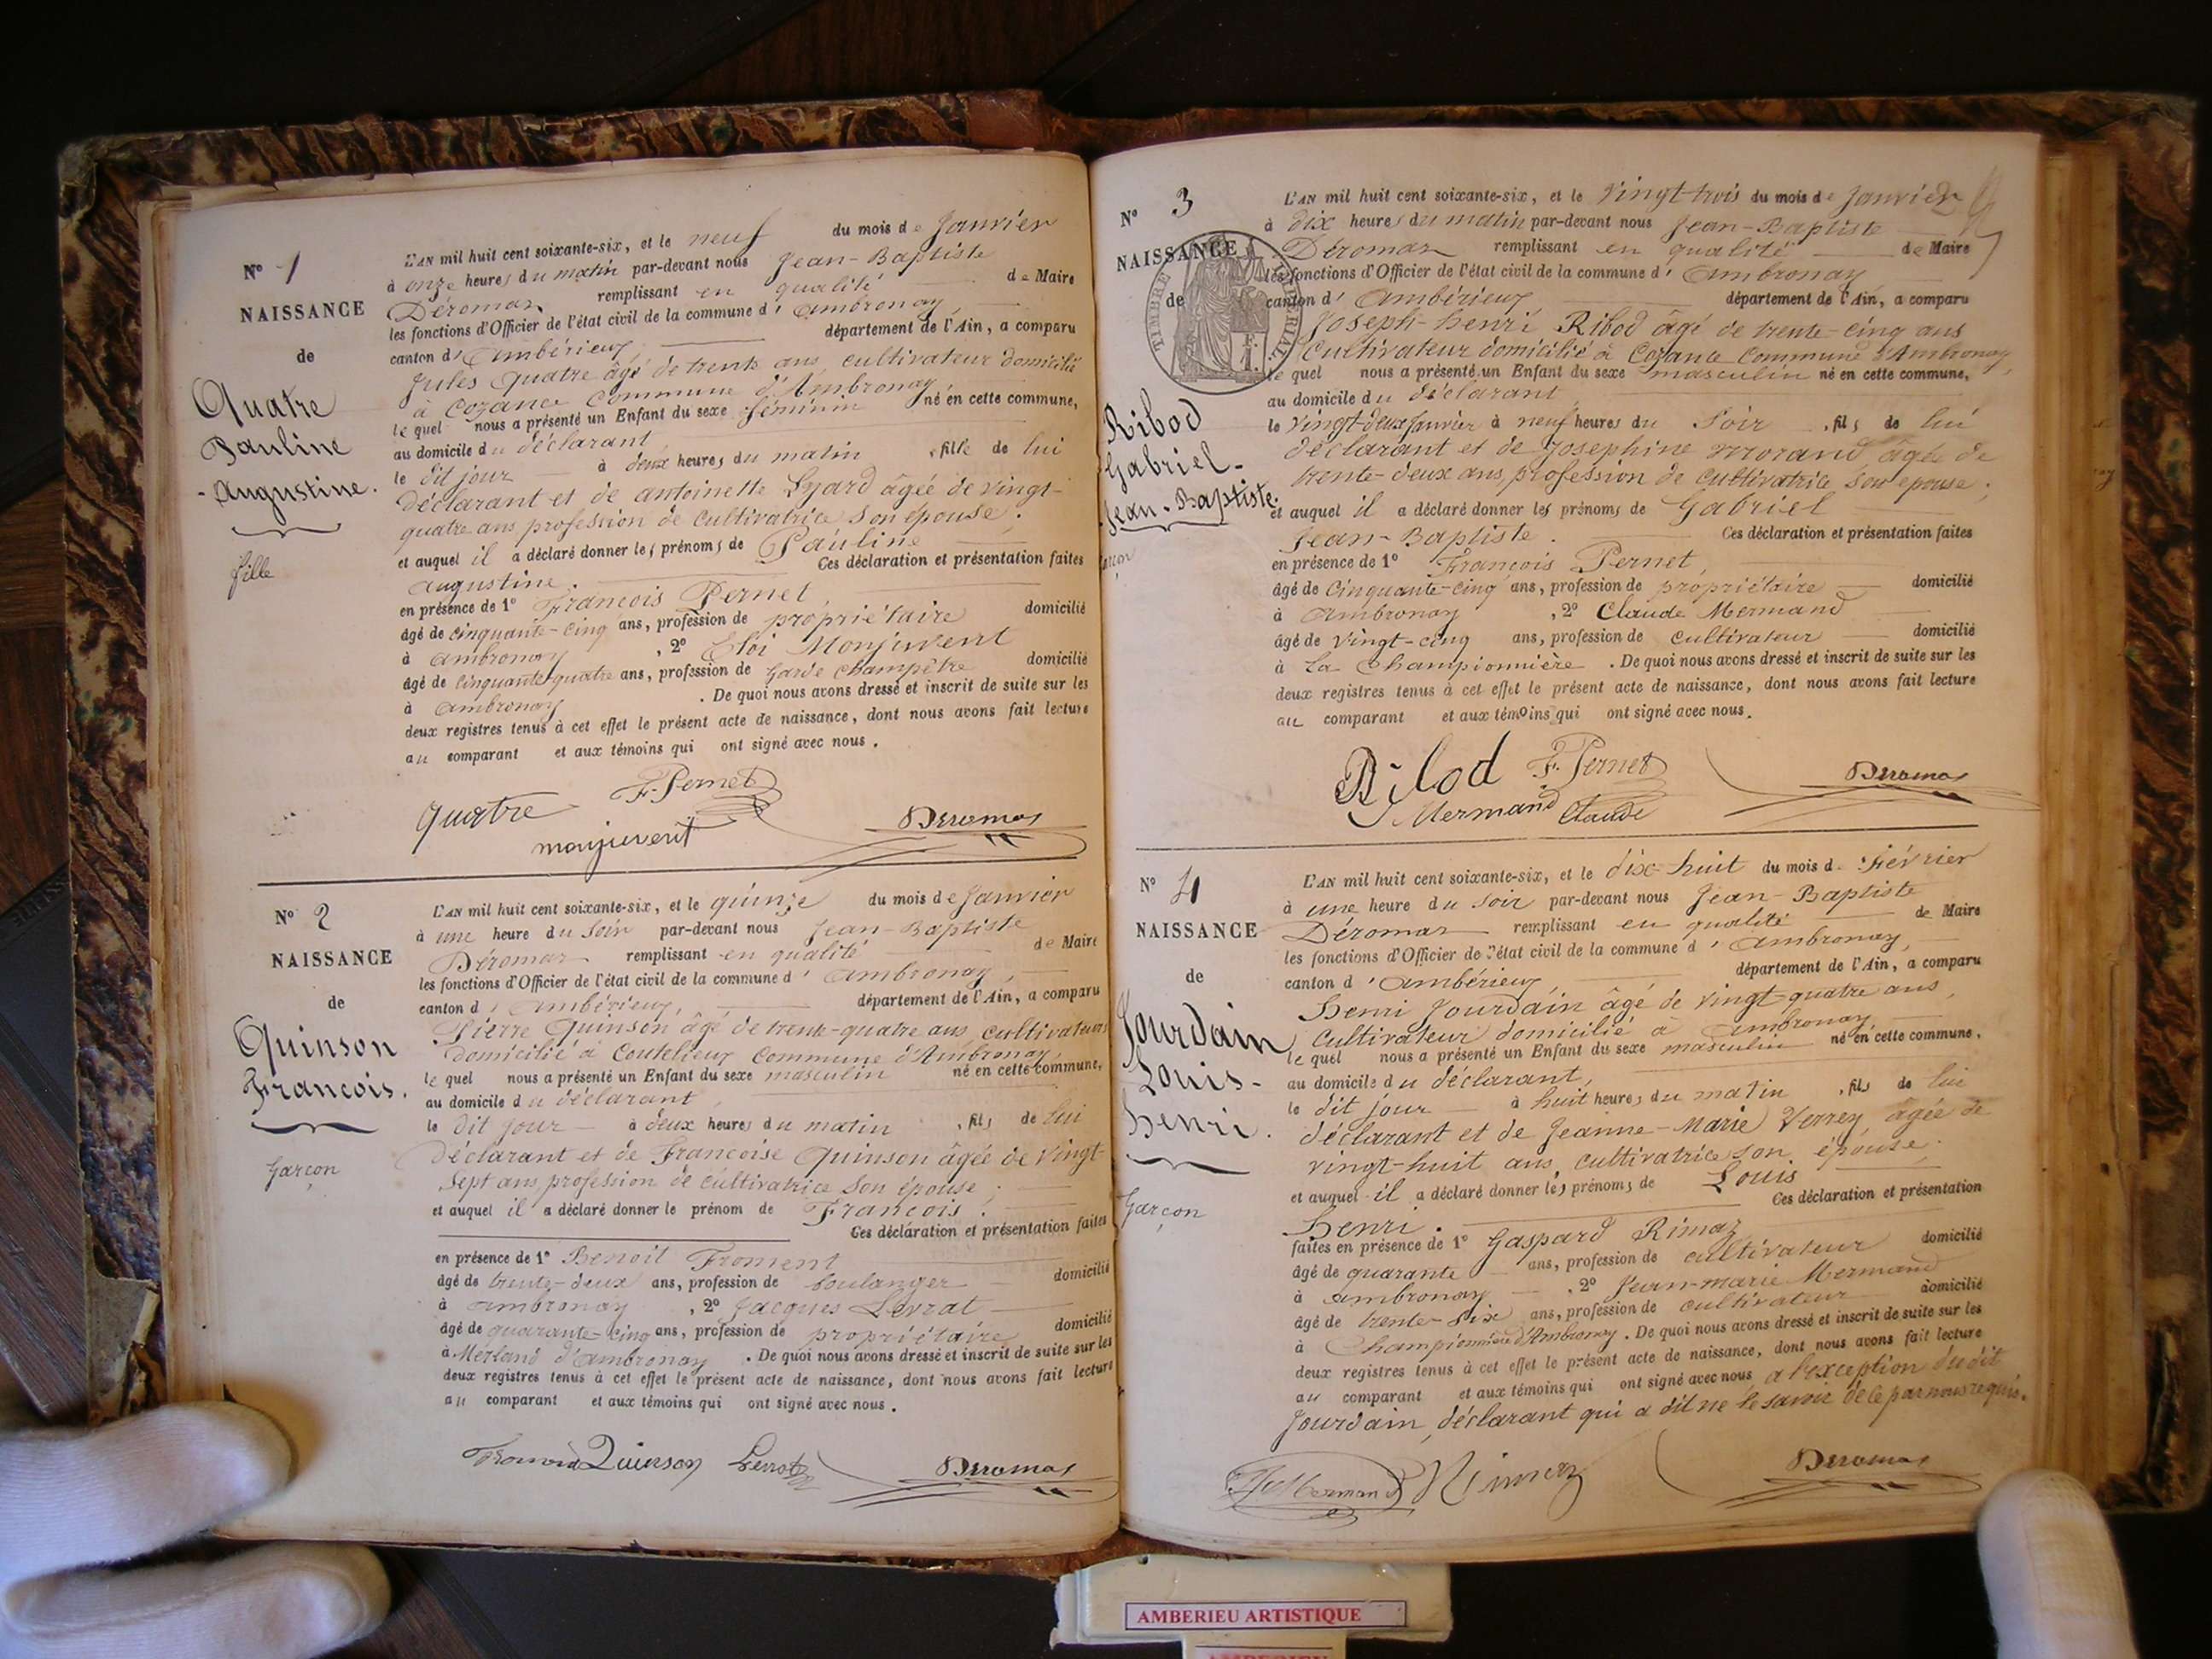 N° 1
NAISSANCE
de
Quatre
Pauline
-Augustine.
fille
L'AN mil huit cent soixante-six, et le neuf du mois de Janvier
à onze heures du matin par-devant nous Jean-Baptiste
Déromas remplissant en qualité de Maire
les fonctions d'Officier de l'état civil de la commune d'Ambronay
canton d'Ambérieux, département de l'Ain, a comparu
Jules Quatre âgé de trente ans, cultivateur domicilié
à Cozance Commune d'Ambronay
le quel nous a présenté un Enfant du sexe féminin né en cette commune,
au domicile du déclarant,
le dit jour à deux heures du matin, fille de lui
déclarant et de antoinette Lyard âgée de vingt-
quatre ans profession de cultivatrice son épouse;
et auquel il a déclaré donner les prénoms de Pauline
augustine. Ces déclaration et présentation faites
en présence de 1° François Pernet,
âgé de cinquante-cinq ans, profession de propriétaire domicilié
à ambronay, 2° Eloi Monjuvent
âgé de cinquante-quatre ans, profsssion de garde champêtre domicilié
à ambronay. De quoi nous avons dressé et inscrit de suite sur les
deux registres tenus à cet effet le présent acte de naissance, dont nous avons fait lecture
au comparant et aux témoins qui ont signé avec nous.
quatre F. Pernet
monjuvent Deromas
N° 2
NAISSANCE
de
Quinson
François.
Garçon
L'AN mil huit cent soixante-six, et le quinze du mois de Janvier
à une heure du soir par-devant nous Jean-Baptiste
Déromas remplissant en qualité de Maire
les fonctions d'Officier de l'état civil de la commune d'Ambronay,
canton d'Ambérieux, département de l'Ain, a comparu
Pierre Quinson âgé de trente-quatre ans, cultivateur
domicilié à Coutelieux Commune d'Ambronay,
le quel nous a présenté un Enfant du sexe masculin né en cette commune,
au domicile du déclarant,
le dit jour à deux heures du matin, fils de lui
déclarant et de Françoise Quinson âgée de vingt-
sept ans, profession de cultivatrice son épouse;
et auquel il a déclaré donner le prénom de François.
Ces déclaration et présentation faites
en présence de 1° Benoit Froment
âgé de trente-deux ans, profession de boulanger domicilié
à ambronay, 2° Jacques Levrat
âgé de quarante-cinq ans, profession de propriétaire domicilié
à Merland d'ambronay. De quoi nous avons dressé et inscrit de suite sur les
deux registres tenus à cet effet le présent acte de naissance, dont nous avons fait lecture
au comparant et aux témoins qui ont signé avec nous.
Quinson Levrat Deromas
N° 3
NAISSANCE
de
TIMBRE IMPERIAL
Ribod
Gabriel-
Jean-Baptiste.
L'AN mil huit cent soixante-six, et le vingt-trois du mois de Janvier
à dix heures du matin par-devant nous Jean-Baptiste
Déromas remplissant en qualité de Maire
les fonctions d'Officier de l'état civil de la commune d'Ambronay
canton d'Ambérieux département de l'Ain, a comparu
Joseph-henri Ribod âgé de trente-cinq ans
Cultivateur domicilié à Cozance Commune d'Ambronay,
le quel nous a présenté un Enfant du sexe masculin né en cette commune,
au domicile du déclarant
le vingt-deux Janvier à neuf heures du soir, fils de lui
déclarant et de Josephine morand âgée de
trente-deux ans, profession de cultivatrice son épouse;
et auquel il a déclaré donner les prénoms de Gabriel
Jean-Baptiste. Ces déclaration et présentation faites
en présence de 1° François Pernet,
âgé de cinquante-cinq ans, profession de propriétaire domicilié
à Ambronay, 2° Claude Mermand
âgé de vingt-cinq ans, profession de cultivateur domicilié
à la Championnière. De quoi nous avons dressé et inscrit de suite sur les
deux registres tenus à cet effet le présent acte de naissance, dont nous avons fait lecture
au comparant et aux témoins qui ont signé avec nous.
F. Pernet Deromas
Mermand Claude
N° 4
NAISSANCE
de
Jourdain
Louis-
henri.
Garçon
L'AN mil huit cent soixante-six, et le dix-huit du mois de Février
à une heure du soir par-devant nous Jean-Baptiste
Déromas remplissant en qualité de Maire
les fonctions d'Officier de l'état civil de la commune d'Ambronay,
canton d'Ambérieux, département de l'Ain, a comparu
henri Jourdain âgé de vingt-quatre ans,
cultivateur domicilié à Ambronay
le quel nous a présenté un Enfant du sexe masculin né en cette commune,
au domicile du déclarant,
le dit jour à huit heures du matin, fils de lui
déclarant et de Jeanne-Marie Verrey âgée de
vingt-huit ans, cultivatrice son épouse;
et auquel il a déclaré donner les prénoms de Louis
henri. Ces déclaration et présentation
faites en présence de 1° Gaspard Rimaz
âgé de quarante ans, profession de cultivateur domicilié
à Ambronay, 2° Jean-marie Mermand
âgé de trente-six ans, profession de cultivateur domicilié
à Championnière d'Ambronay. De quoi nous avons dressé et inscrit de suite sur les
deux registres tenus à cet effet le présent acte de naissance, dont nous avons fait lecture
au comparant et aux témoins qui ont signé avec nous a l'exception du dit
Jourdain, déclarant qui a dit ne le savoir de ce par nous requis.
Mermand Rimaz Deromas
AMBERIEU ARTISTIQUE